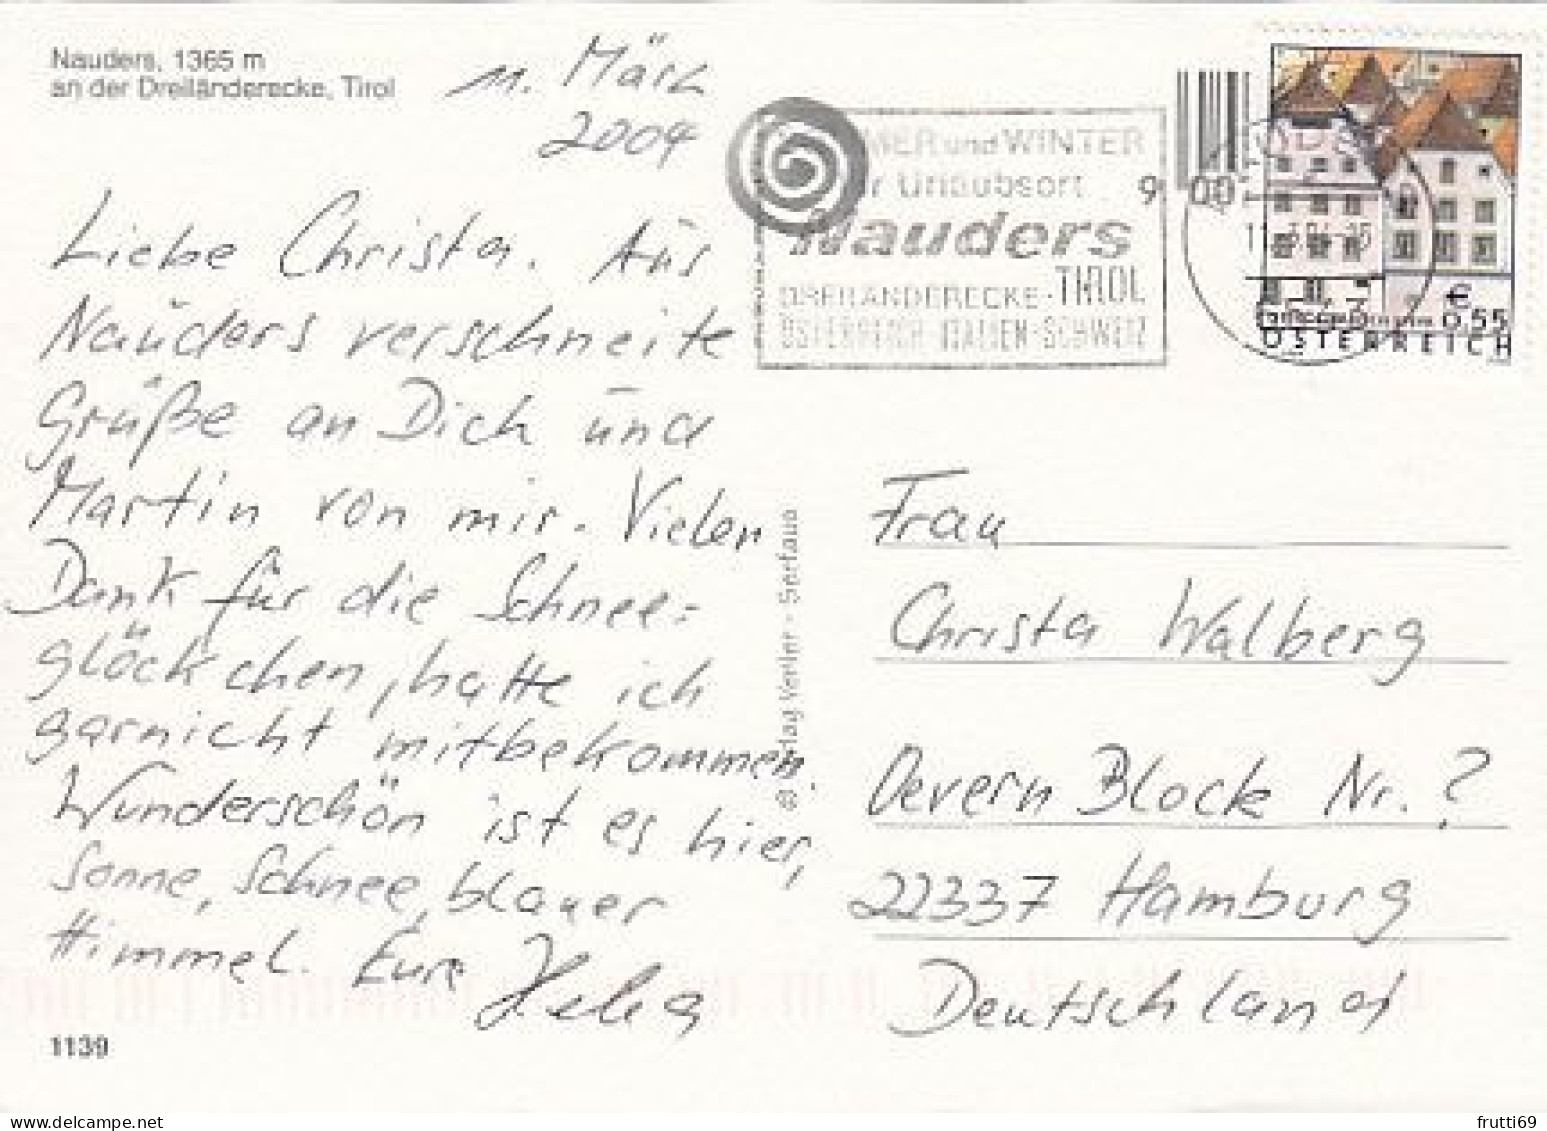 Nauders, 1365 m
an der Dreiländerecke, Tirol
11. März
2004
Liebe Christa. Aus
Nauders verschneite
Grüße an Dich und
Martin von mir. Vielen
Dank für die Schnee=
glöckchen, hatte ich
garnicht mitbekommen.
Wunderschön ist es hier,
Sonne, Schnee, blauer
Himmel. Eure
Helga
1139
Verlag Verter - Serfaus
MER und WINTER
Urlaubsort
Nauders
DREILÄNDERECKE - TIROL
ÖSTERREICH - ITALIEN - SCHWEIZ
€
0,55
ÖSTERREICH
Frau
Christa Walberg
Oevern Block Nr. ?
22337 Hamburg
Deutschland
frutti69